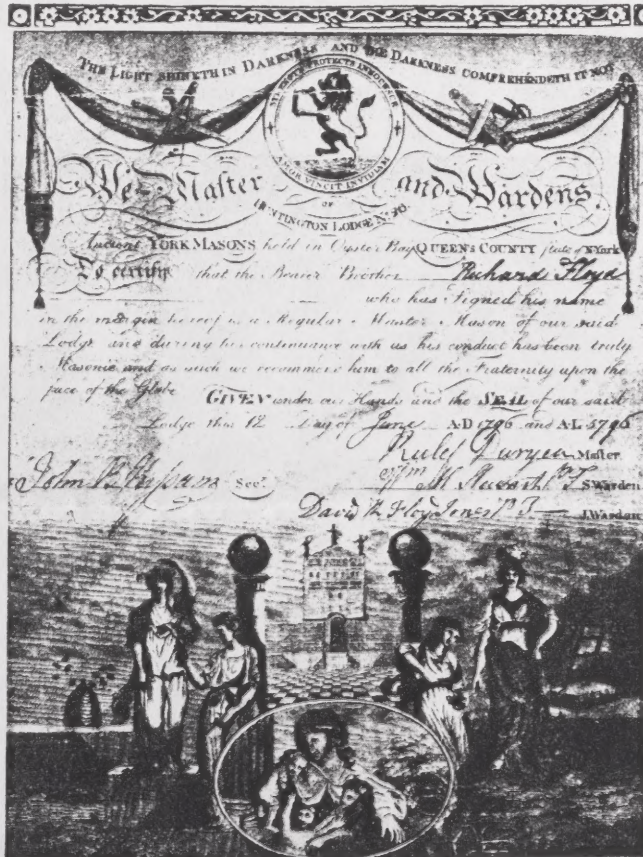 THE LIGHT SHINETH IN DARKNESS AND THE DARKNESS COMPREHENDETH IT NOT
PROTECTS INNOCENCE
AMOR VINCIT INVIDIAM
We Master and Wardens
OF
HUNTINGTON LODGE No.
Ancient YORK MASONS held in Oyster Bay QUEENS COUNTY State of N York
To certify that the Bearer Brother Richard Floyd
who has Signed his name
in the margin hereof is a Regular Master Mason of our said
Lodge and during his continuance with us his conduct has been truly
Masonic and as such we recommend him to all the Fraternity upon the
face of the Globe GIVEN under our Hands and the SEAL of our said
Lodge this 12 Day of June A·D 1796 and A·L 5796
Ruleff Duryea Master
John Secy. Wm M P.T S.Warden
David R Floyd Jones P T J.Warden